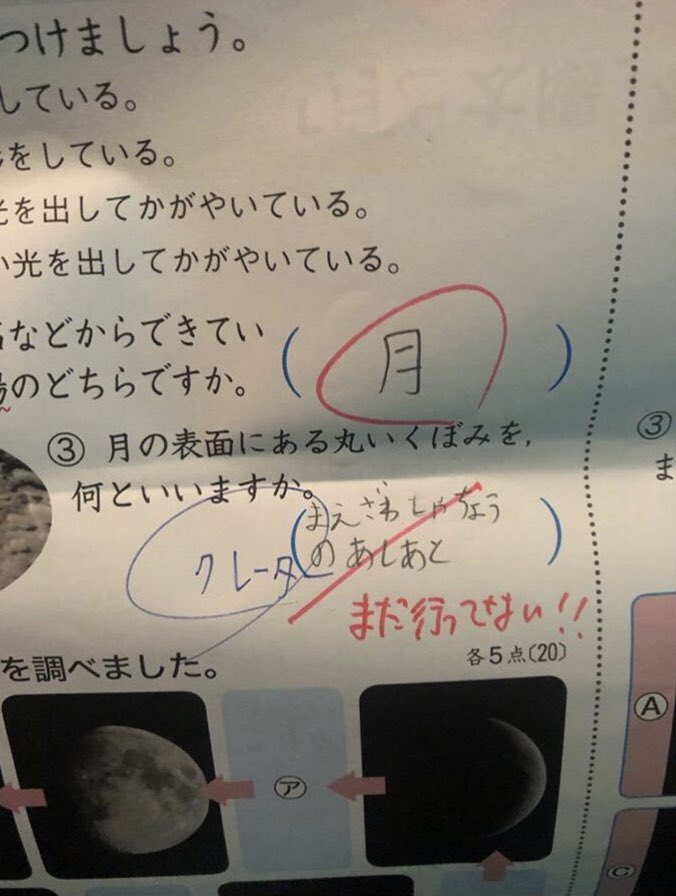 つけましょう。
している。
をしている。
光を出してかがやいている。
い光を出してかがやいている。
などからできてい
陽のどちらですか。
(月)
③ 月の表面にある丸いくぼみを,
何といいますか。
(まえざわしゃちょう
のあしあと)
クレータ
まだ行ってない!!
各5点(20)
を調べました。
ア
③
ま
A
C